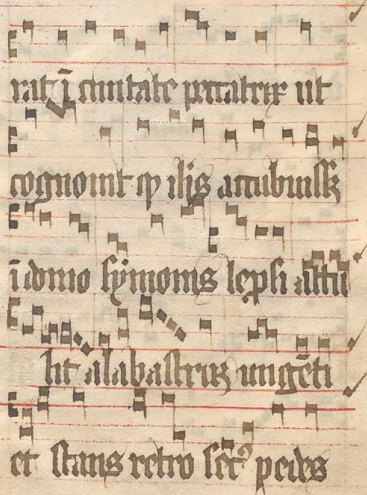 rat ī ciuitate peccatrix ut
cognouit qꝫ ih̄s accubuissꝫ
ī domo symonis lepsi attu
lit alabastruꝫ ungēti
et stans retro secꝰ pedes